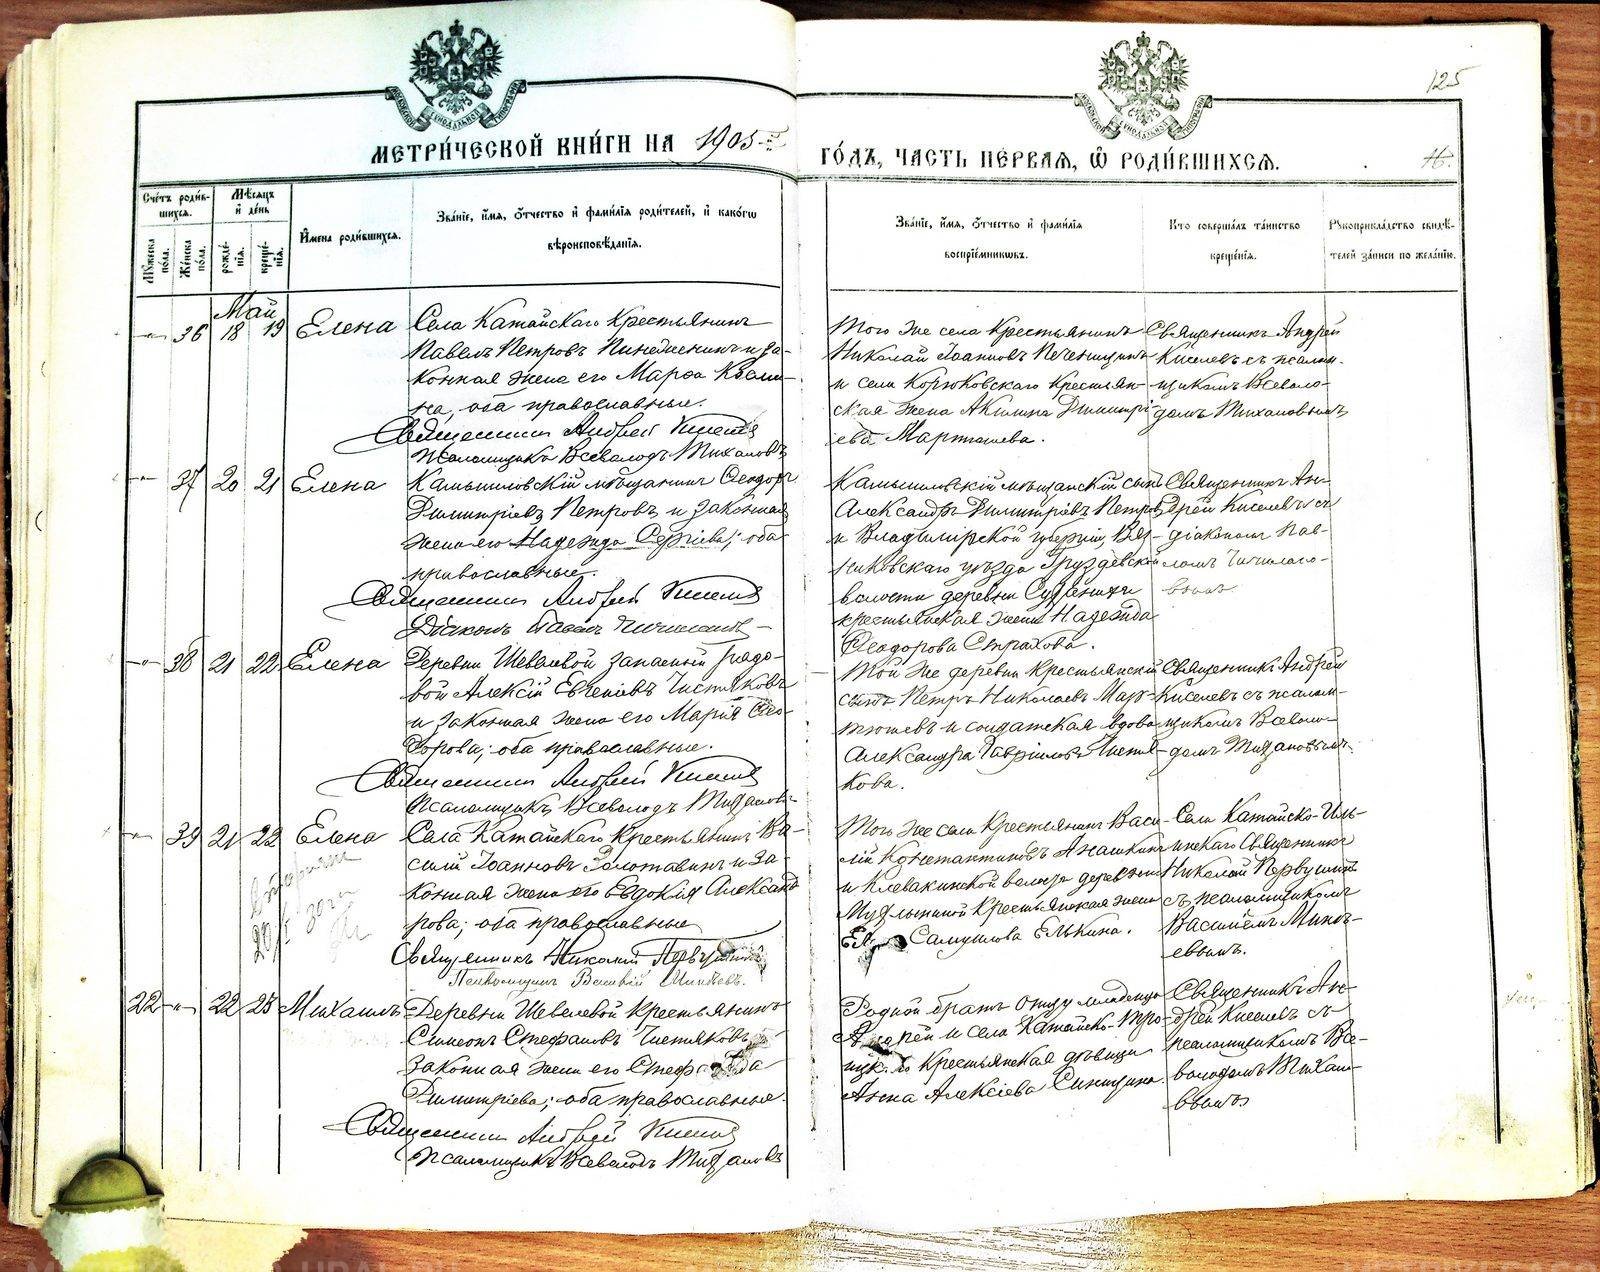 125
МЕТРИЧЕСКОЙ КНИГИ НА 1905-й ГОДЪ, ЧАСТЬ ПЕРВАЯ, Ѡ РОДИВШИХСЯ.
16.
Счетъ родив-
шихся.
Мѣсяцъ
и день
Мужеска
пола.
Женска
пола.
рожде-
нія.
креще-
нія.
Имена родившихся.
Званіе, имя, отчество и фамилія родителей, и какогω
вѣроисповѣданія.
Званіе, имя, отчество и фамилія
воспріемникωвъ.
Кто совершалъ таинство
крещенія.
Рукоприкладство свидѣ-
телей записи по желанію.
Май
36 18 19 Елена
Села Катайскаго Крестьянинъ
Павелъ Петровъ и за-
конная жена его Марѳа Козми-
на, оба православные.
Священникъ Андрей Киселевъ
Псаломщикъ Всеволодъ Тихановъ
Того же села Крестьянинъ
Николай Іоанновъ Печенинъ
и села Корюковскаго Крестьян-
ская жена Акилина Димитрі-
ева Мартюшева.
Священникъ Андрей
Киселевъ съ псалом-
щикомъ Всеволо-
домъ Тихановымъ
37 20 21 Елена
Камышловскій мѣщанинъ Ѳеодоръ
Димитріевъ Петровъ и законная
жена его Надежда Сергіева; оба
православные.
Священникъ Андрей Киселевъ
Діаконъ Павелъ
Камышловскій мѣщанскій сынъ
Александръ Димитріевъ Петровъ
и Владимірской губерніи, Вяз-
никовскаго уѣзда Груздевской
волости деревни
крестьянская жена Надежда
Ѳеодорова Страхова.
Священникъ Ан-
дрей Киселевъ съ
діакономъ Пав-
ломъ
38 21 22 Елена
Деревни Шевелевой запасный рядо-
вой Алексій Евгеніевъ Чистяковъ
и законная жена его Марія Ѳео-
дорова; оба православные.
Священникъ Андрей Киселевъ
Псаломщикъ Всеволодъ Тихановъ
Той же деревни крестьянскій
сынъ Петръ Николаевъ Мар-
тюшевъ и солдатская вдова
Александра Гавріилова Чистя-
кова.
Священникъ Андрей
Киселевъ съ псалом-
щикомъ Всеволо-
домъ Тихановымъ.
39 21 22 Елена
Села Катайскаго Крестьянинъ Ва-
силій Іоанновъ Золотавинъ и за-
конная жена его Евдокія Александ-
рова; оба православные
Священникъ Николай Первушинъ
Псаломщикъ Василій Минѣевъ.
Того же села Крестьянинъ Васи-
лій Константиновъ Анашкинъ
и Клевакинской волости деревни
Крестьянская жена
Самуилова Елькина.
Села Катайско-Иль-
инскаго Священникъ
Николай Первушинъ
съ псаломщикомъ
Василіемъ Минѣ-
евымъ.
22 22 23 Михаилъ
Деревни Шевелевой Крестьянинъ
Симеонъ Стефановъ Чистяковъ
законная жена его
Димитріева; оба православные.
Священникъ Андрей Киселевъ
Псаломщикъ Всеволодъ Тихановъ
Родной братъ отцу младенца
Андрей и села Катайско-Тро-
ицкаго Крестьянская дѣвица
Анна Алексіева Синицына.
Священникъ Ан-
дрей Киселевъ съ
псаломщикомъ Все-
володомъ Тихан-
овымъ